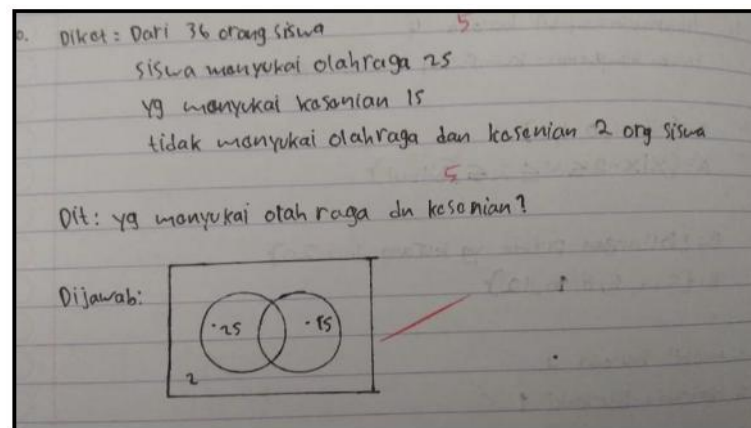 5
Diket: Dari 36 orang siswa
siswa menyukai olahraga 25
yg menyukai kesenian 15
tidak menyukai olahraga dan kesenian 2 org siswa
5
Dit: yg menyukai olah raga dn kesenian?
Dijawab:
·25 ·15
2